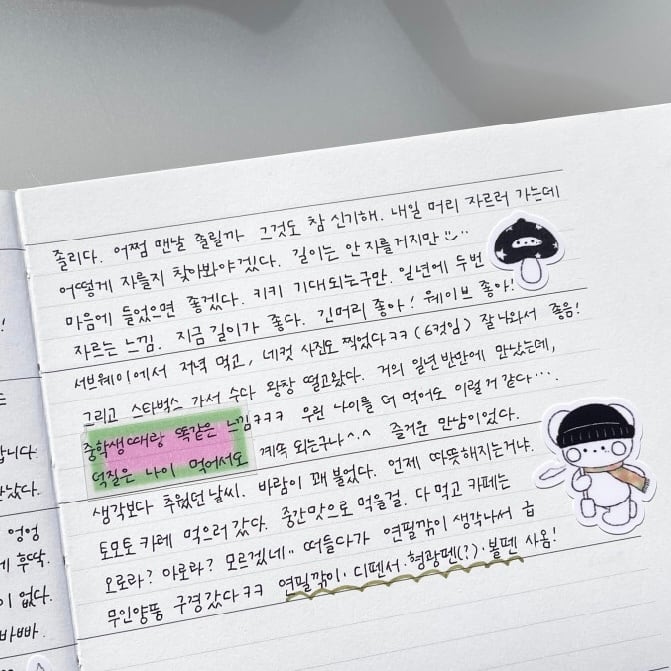 졸리다. 어쩜 맨날 졸릴까 그것도 참 신기해. 내일 머리 자르러 가는데
어떻게 자를지 찾아봐야겠다. 길이는 안 자를거지만
마음에 들었으면 좋겠다. 키키 기대되는구만. 일년에 두번
자르는 느낌. 지금 길이가 좋다. 긴머리 좋아! 웨이브 좋아!
서브웨이에서 저녁 먹고, 네컷 사진도 찍었다ㅋㅋ (6컷임) 잘 나와서 좋음!
그리고 스타벅스 가서 수다 왕창 떨고왔다. 거의 일년 반만에 만났는데,
중학생때랑 똑같은 느낌ㅋㅋㅋ 우린 나이를 더 먹어도 이럴 거 같다···.
덕질은 나이 먹어서도 계속 되는구나^.^ 즐거운 만남이었다.
생각보다 추웠던 날씨. 바람이 꽤 불었다. 언제 따뜻해지는거냐.
토모토 카레 먹으러 갔다. 중간맛으로 먹을걸. 다 먹고 카페는
오로라? 아로라? 모르겠네.. 떠들다가 연필깎이 생각나서 급
무인양품 구경갔다ㅋㅋ 연필깎이·디펜서·형광펜(?)·볼펜 사옴!
!
는
합니다
났다.
엉엉
후딱.
이 없다.
바빠.